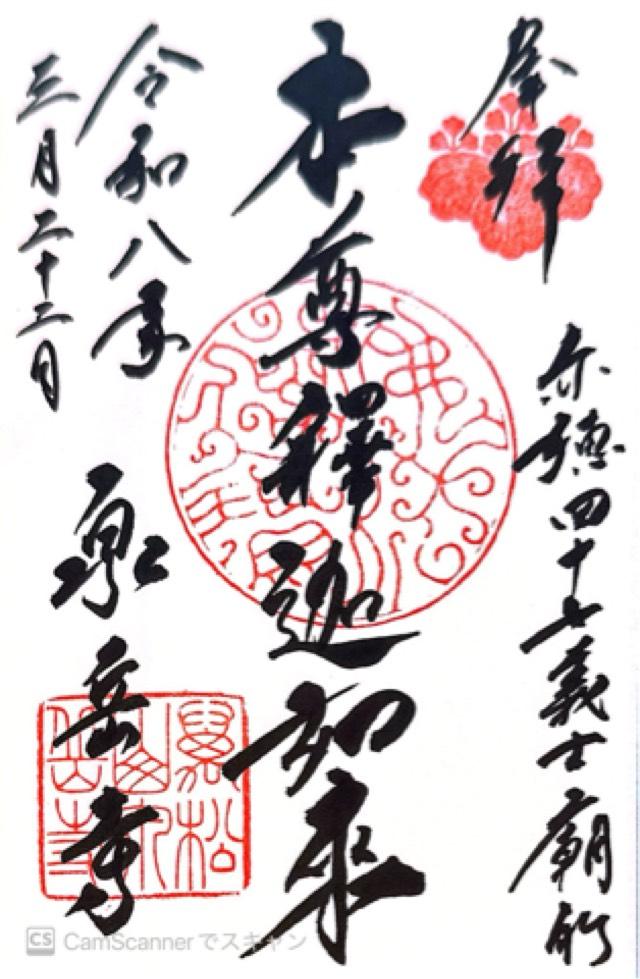 奉拝
赤穂四十七義士廟所
本尊釋迦如来
令和八年
三月二十二日
泉岳寺
萬松山泉岳寺
CS CamScannerでスキャン